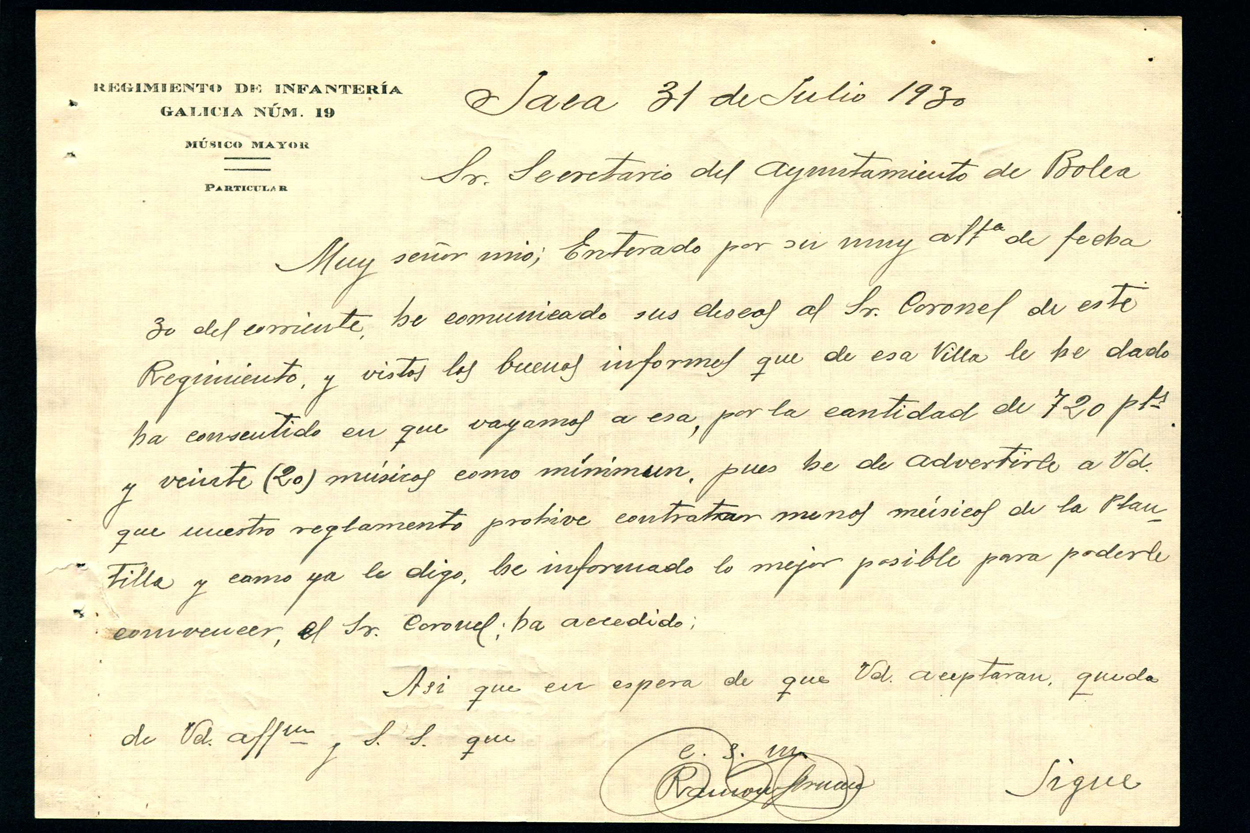 REGIMIENTO DE INFANTERÍA
GALICIA NÚM. 19
MÚSICO MAYOR
PARTICULAR
Jaca 31 de Julio 1930
Sr. Secretario del Ayuntamiento de Bolea
Muy señor mio; Enterado por su muy attª de fecha
30 del corriente, he comunicado sus deseos al Sr. Coronel de este
Regimiento, y vistos los buenos informes que de esa Villa le he dado
ha consentido en que vayamos a esa, por la cantidad de 720 pts
y veinte (20) músicos como mínimun, pues he de advertirle a Vd.
que nuestro reglamento prohive contratar menos músicos de la Plan-
tilla y como ya le digo, he informado lo mejor posible para poderle
convencer, el Sr. Coronel; ha accedido;
Asi que en espera de que Vd. aceptaran, queda
de Vd. affmo y S. S. que
e. s. m.
Ramon
Sigue